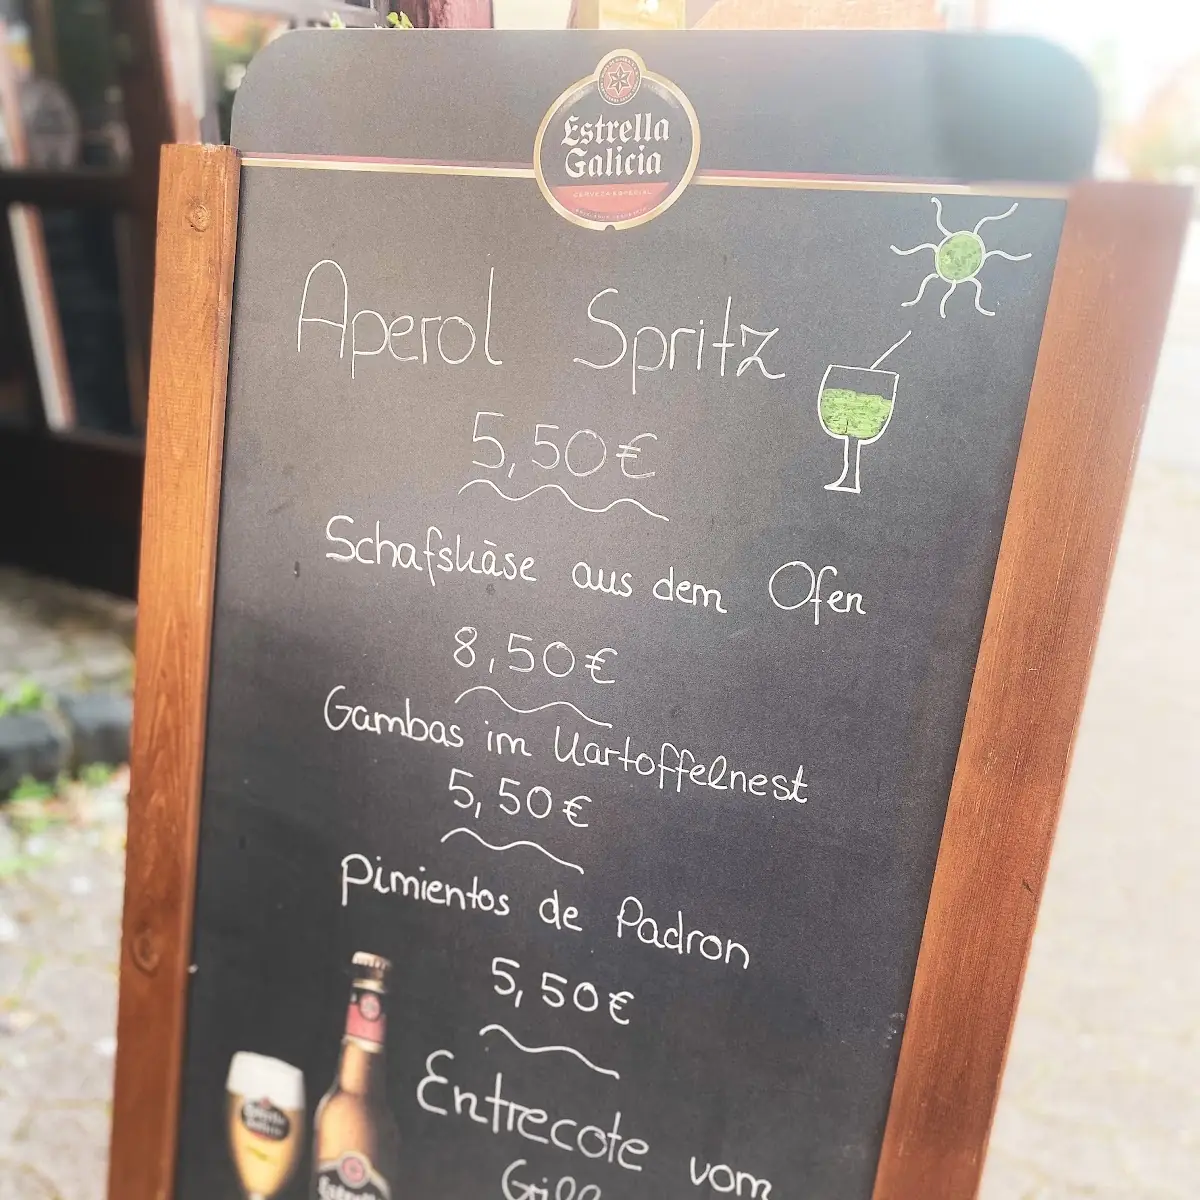 Estrella
Galicia
CERVEZA ESPECIAL
Aperol Spritz
5,50€
Schafskäse aus dem Ofen
8,50€
Gambas im Kartoffelnest
5,50€
Pimientos de Padron
5,50€
Entrecote vom
Grill
Estrella